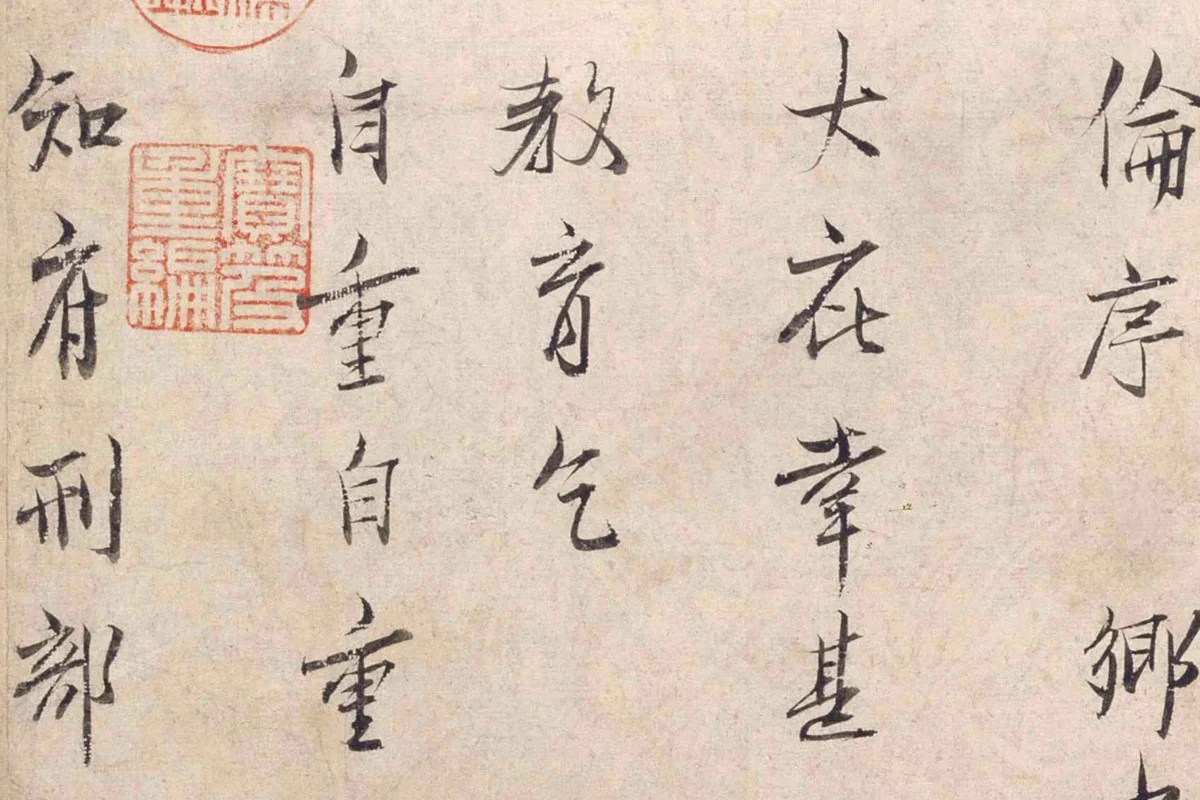 倫序 鄉
大庇幸甚
教育乞
自重自重
寶笈
重編
知府刑部